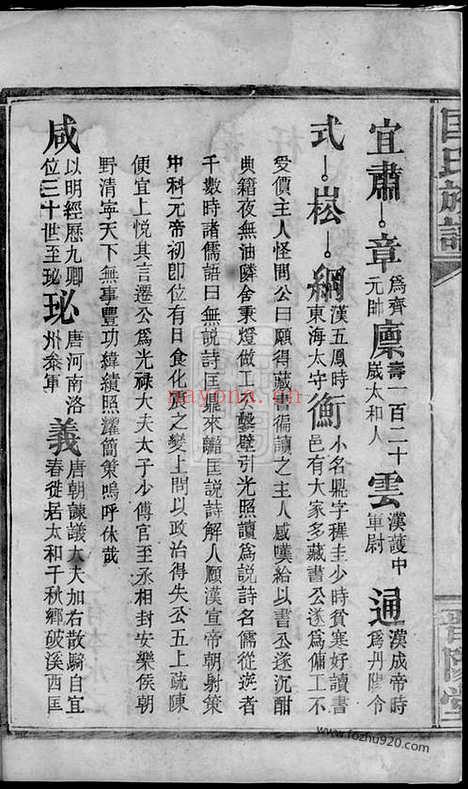 匡氏族譜
晉陽堂
宜肅章為齊元帥廩壽一百二十歲太和人雲漢護中軍尉通漢成帝時為丹陽令
式崧綱漢五鳳時東海太守衡小名鼎字穉圭少時貧寒好讀書邑有大家多藏書公遂為傭工不
受價主人怪問公曰願得藏書徧讀之主人感嘆給以書公遂沉酣
典籍夜無油隣舍秉燈做工公鑿壁引光照讀為說詩名儒從遊者
千數時諸儒語曰無說詩匡鼎來匡說詩解人頤漢宣帝朝射策
中科元帝初即位有日食化震之變上問以政治得失公五上疏陳
便宜上悅其言遷公為光祿大夫太子少傅官至丞相封安樂侯朝
野清寧天下無事豐功緯績照耀簡策嗚呼休哉
咸以明經歷九卿位三十世至珌珌唐河南洛州叅軍義唐朝諫議大夫加右散騎自宜春徙居太和千秋鄉破溪西匡
nayona.cn
www.fozhu920.com